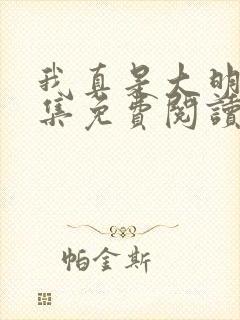 我真是大明
集免費閱讀
帕金斯